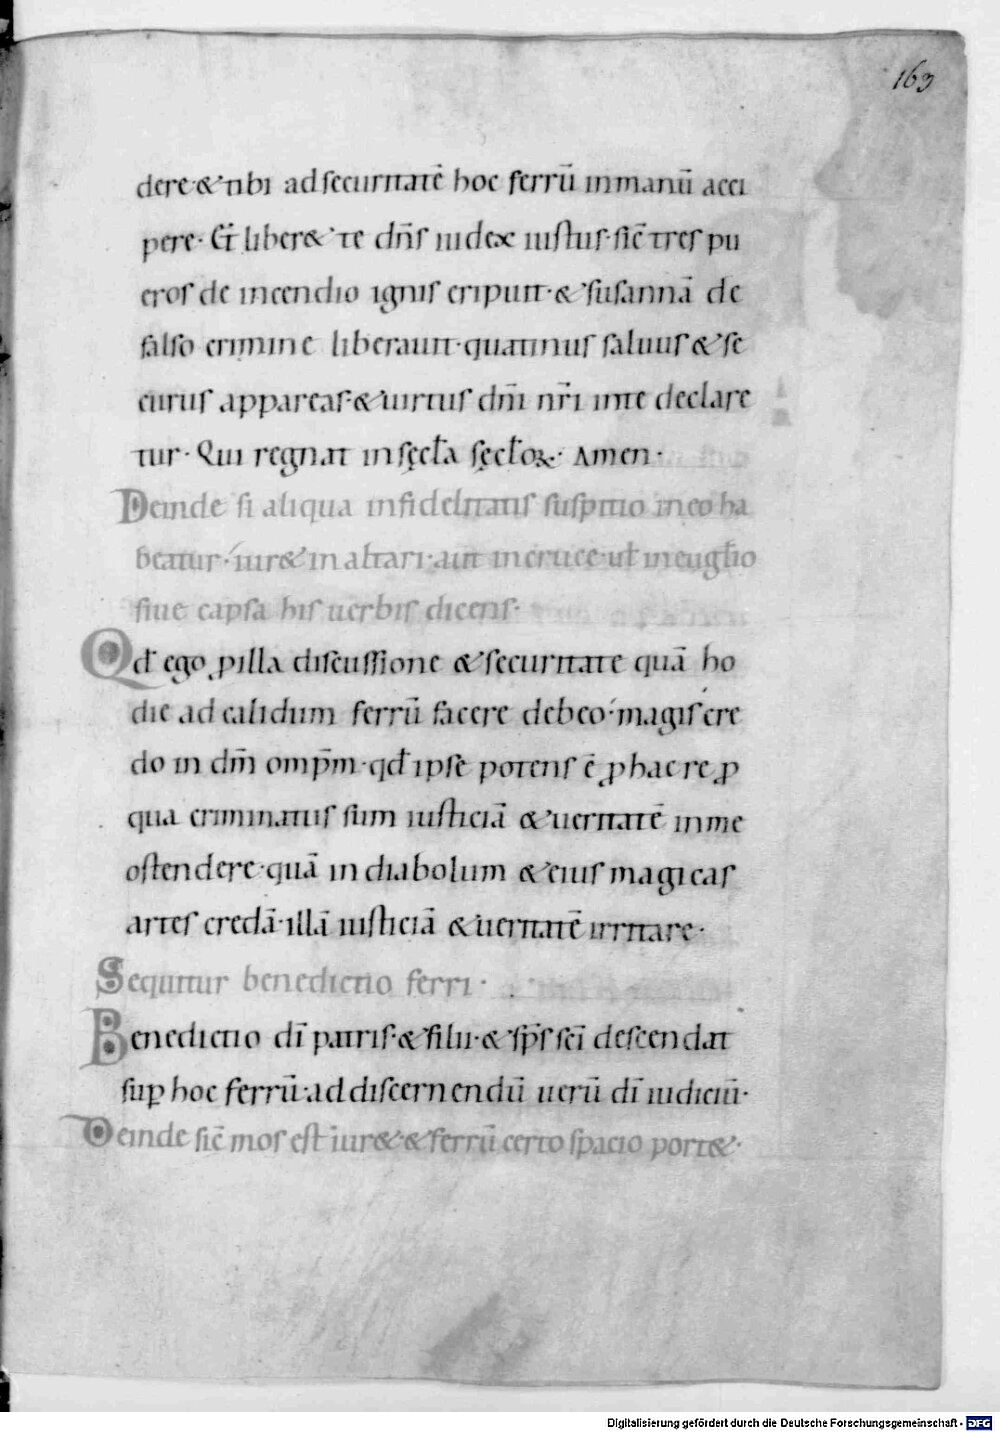 163
dere·& tibi ad securitatē hoc ferrū inmanū acci
pere· Et̄ liber& te dn̄s iudex iustus· sic̄ tres pu
eros de incendio ignis eripuit·& susannā de
falso crimine liberauit· quatinus saluus & se
curus appareas·& uirtus dn̄i nr̄i inte declare
tur· Qui regnat in sęcl̄a sęcl̄oꝝ· Amen·
Deinde si aliqua infidelitatis suspitio ineo ha
beatur· iur& in altari· aut incruce· ut̄ ineugl̄io
siue capsa his uerbis dicens·
Qd̄ ego ꝓilla discussione & securitate quā ho
die ad calidum ferrū facere debeo· magis cre
do in dm̄ omp̄m· qd̄ ipse potens ē ꝓ hac re ꝓ
qua criminatus sum iusticiā & ueritatē inme
ostendere· quā in diabolum & eius magicas
artes credā· illā iusticiā & ueritatē irritare·
Sequitur benedictio ferri·
Benedictio dī patris·& filii·& sp̄s sc̄i descendat
sup̱ hoc ferrū· ad discernendū uerū dī iudiciū·
Deinde sic̄ mos est iur&·& ferrū certo spacio port&·
Digitalisierung gefördert durch die Deutsche Forschungsgemeinschaft - DFG